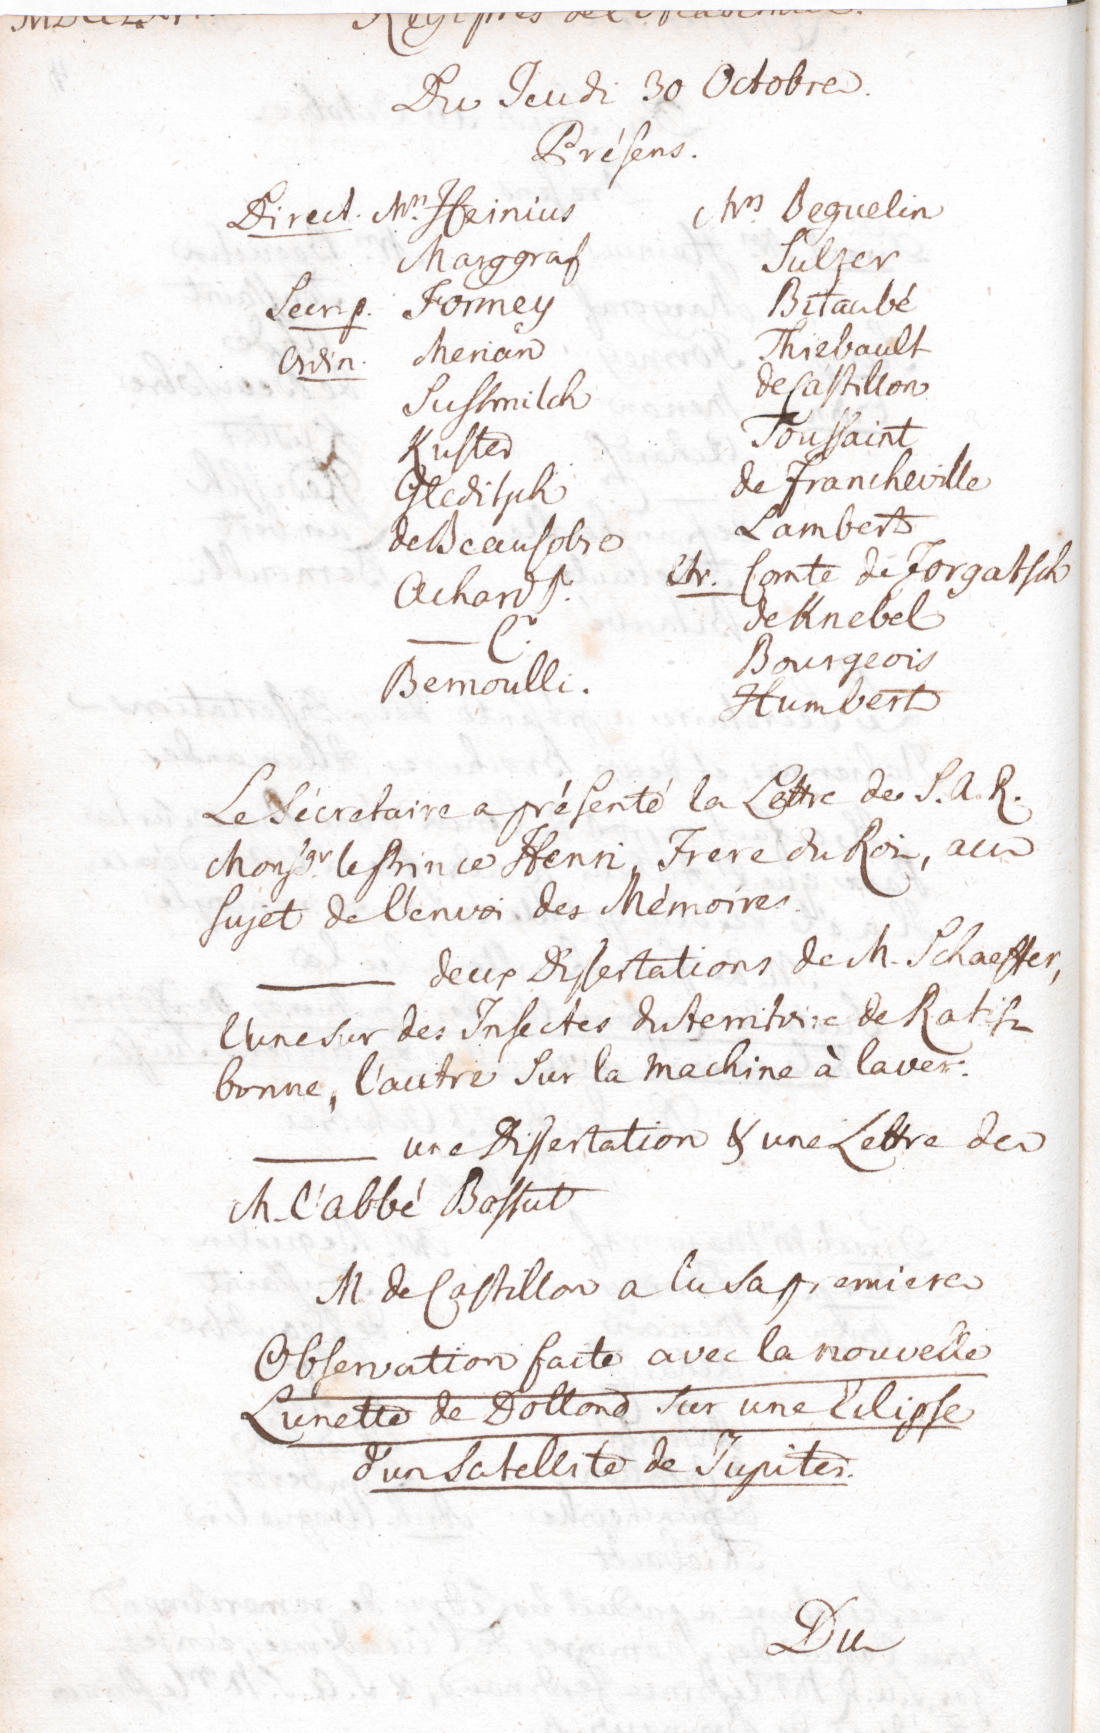 Registres de l'Academie.
Du Jeudi 30 Octobre.
Présens.
Direct. Mrs. Heinius
Marggraf
Secr. p. Formey
Ordin. Merian
Sussmilch
Kuster
Gleditsch
de Beausobre
Achard P.
—— C.
Bernoulli.
Mrs Beguelin
Sulzer
Bitaubé
Thiebault
de Castillon
Toussaint
de Francheville
Lambert
Etr. Comte de Forgatsch
de Knebel
Bourgeois
Humbert
Le Sécretaire a présenté la Lettre de S. A. R.
Monsgr. le Prince Henri, Frere du Roi, au
sujet de l'envoi des Mémoires.
—— deux Dissertations de M. Schaeffer,
l'une sur des Insectes du territoire de Ratis-
bonne, l'autre sur la machine à laver.
—— une Dissertation & une Lettre de
M. l'abbé Bossut
M. de Castillon a lu sa premiere
Observation faite avec la nouvelle
Lunette de Dollond sur une Eclipse
d'un Satellite de Jupiter.
Du